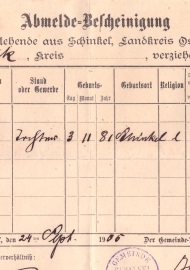 Abmelde-Bescheinigung
ehende aus Schinkel, Landkreis Os
Kreis verziehe
Stand oder Gewerbe Geburts- Tag Monat Jahr Geburtsort Religion
3 11 81 Schinkel l
den 24 ten Sept. 1905 Der Gemeinde-
GEMEINDE